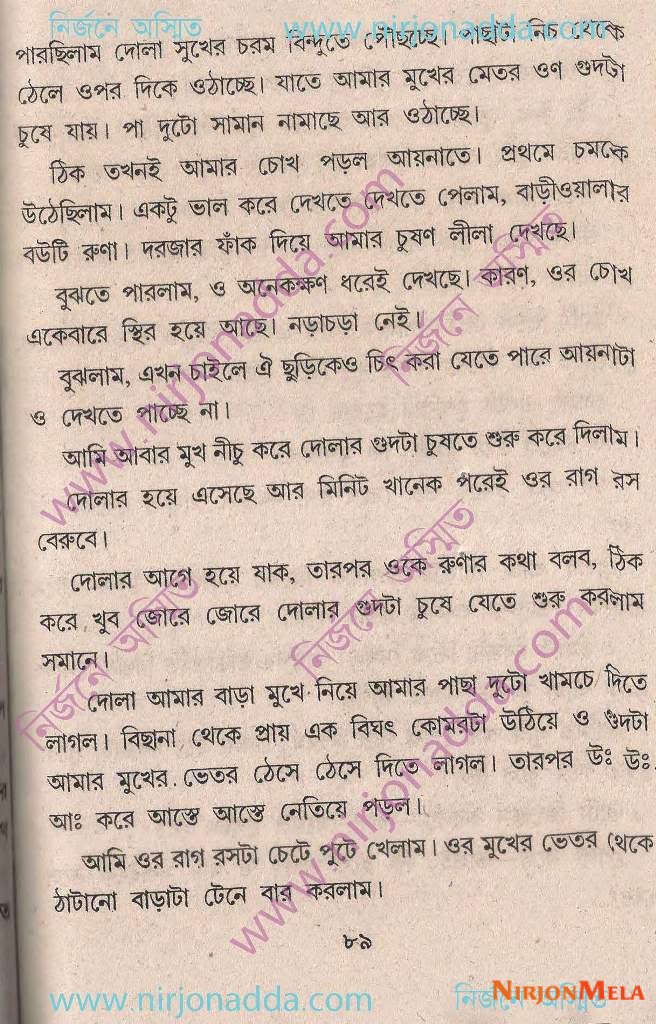 নির্জনে অস্মিত www.nirjonadda.com
পারছিলাম দোলা সুখের চরম বিন্দুতে পৌঁছেছে। পাছাটা নিচ থেকে
ঠেলে ওপর দিকে ওঠাচ্ছে। যাতে আমার মুখের মেতর ওণ গুদটা
চুষে যায়। পা দুটো সামান নামাছে আর ওঠাচ্ছে।
ঠিক তখনই আমার চোখ পড়ল আয়নাতে। প্রথমে চমকে
উঠেছিলাম। একটু ভাল করে দেখতে দেখতে পেলাম, বাড়ীওয়ালার
বউটি রুণা। দরজার ফাঁক দিয়ে আমার চুষণ লীলা দেখছে।
বুঝতে পারলাম, ও অনেকক্ষণ ধরেই দেখছে। কারণ, ওর চোখ
একেবারে স্থির হয়ে আছে। নড়াচড়া নেই।
বুঝলাম, এখন চাইলে ঐ ছুড়িকেও চিৎ করা যেতে পারে আয়নাটা
ও দেখতে পাচ্ছে না।
আমি আবার মুখ নীচু করে দোলার গুদটা চুষতে শুরু করে দিলাম।
দোলার হয়ে এসেছে আর মিনিট খানেক পরেই ওর রাগ রস
বেরুবে।
দোলার আগে হয়ে যাক, তারপর ওকে রুণার কথা বলব, ঠিক
করে খুব জোরে জোরে দোলার গুদটা চুষে যেতে শুরু করলাম
সমানে।
দোলা আমার বাড়া মুখে নিয়ে আমার পাছা দুটো খামচে দিতে
লাগল। বিছানা থেকে প্রায় এক বিঘৎ কোমরটা উঠিয়ে ও গুদটা
আমার মুখের ভেতর ঠেসে ঠেসে দিতে লাগল। তারপর উঃ উঃ
আঃ করে আস্তে আস্তে নেতিয়ে পড়ল।
আমি ওর রাগ রসটা চেটে পুটে খেলাম। ওর মুখের ভেতর থেকে
ঠাটানো বাড়াটা টেনে বার করলাম।
৮৯
www.nirjonadda.com নির্জনে অস্মিত
NIRJONMELA
www.nirjonadda.com
নির্জনে অস্মিত
নির্জনে অস্মিত
নির্জনে অস্মিত
www.nirjonadda.com